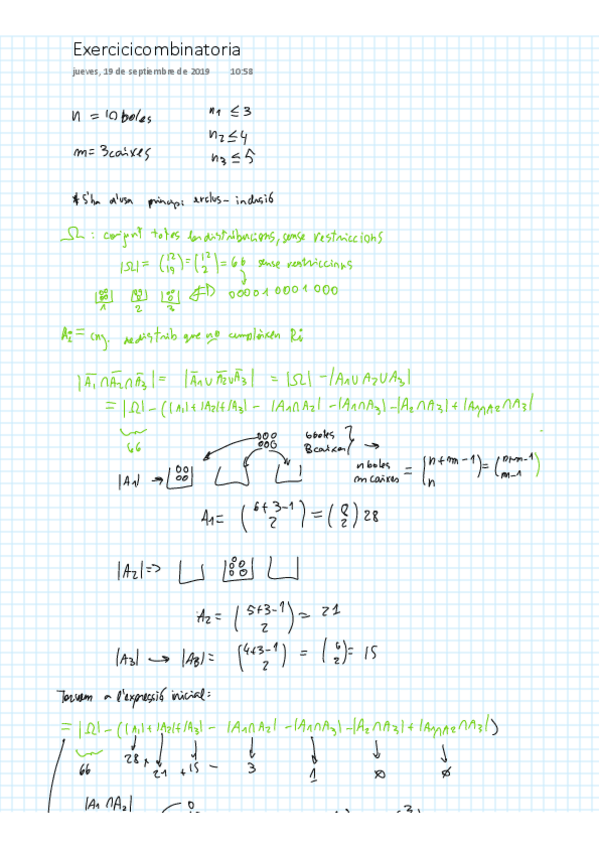 Exercicicombinatoria
jueves, 19 de septiembre de 2019 10:58
n = 10 boles n1 ≤ 3
n2 ≤ 4
m = 3 caixes n3 ≤ 5
* S'ha d'usar principi exclus-inclusió
Ω : conjunt totes les distribucions, sense restriccions
|Ω| = (12 10) = (12 2) = 66 sense restriccions
1 2 3 00001 0001 000
Ai = conj. de distrib que no compleixen Ri
|A̅1 ∩ A̅2 ∩ A̅3| = |A̅1 ∪ A̅2 ∪ A̅3| = |Ω| - |A1 ∪ A2 ∪ A3|
= |Ω| - (|A1| + |A2| + |A3| - |A1∩A2| - |A1∩A3| - |A2∩A3| + |A1∩A2∩A3|
66
6 boles
3 caixes →
|A1| → n boles m caixes = (n+m-1 n) = (n+m-1 m-1)
A1 = (6+3-1 2) = (8 2) 28
|A2| =>
A2 = (5+3-1 2) = 21
|A3| → |A3| = (4+3-1 2) = (6 2) = 15
Tornem a l'expressió inicial:
= |Ω| - (|A1| + |A2| + |A3| - |A1∩A2| - |A1∩A3| - |A2∩A3| + |A1∩A2∩A3|)
66 28 + 21 + 15 - 3 1 0 0
|A1∩A2|